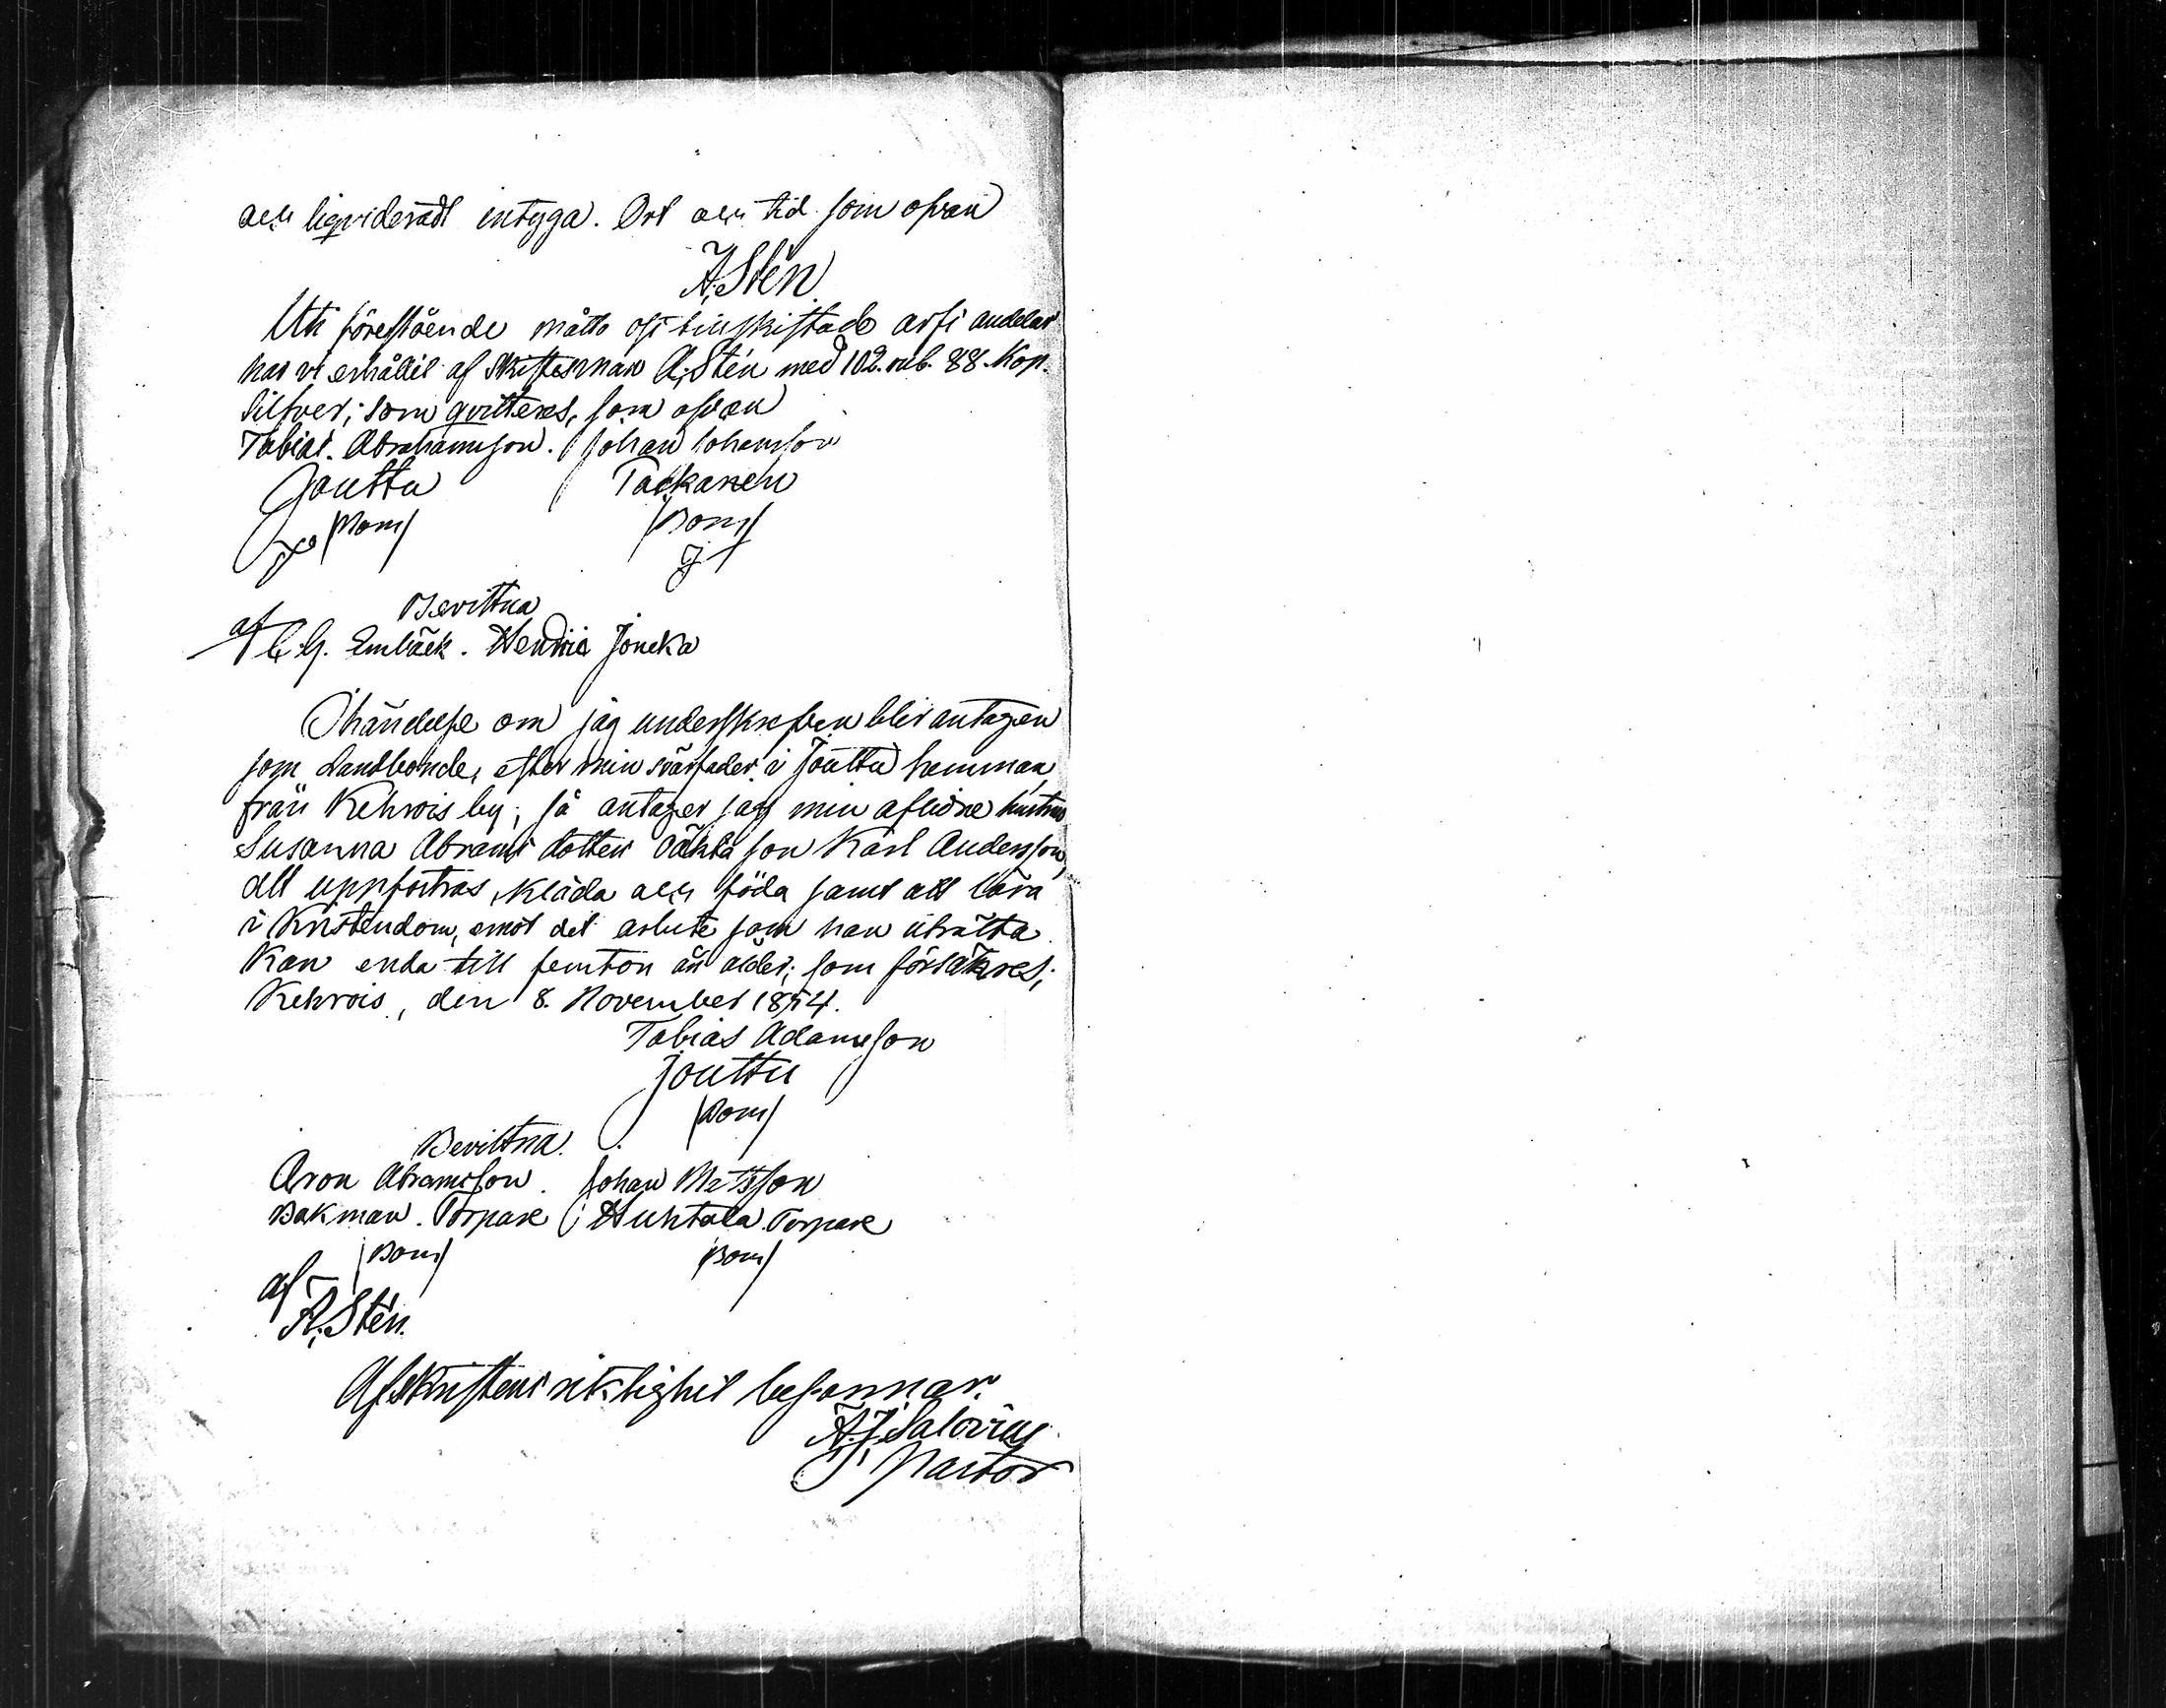 och liqvideradt intyga. Ort och tid som ofvan
A. Stén
Uti förestående måtto af tinskiftade arfs andelar
har vi erhållit af Skiftesman A. Stén med 102. rub. 88. Kop.
Silfver; som qvitteras, som ofvan
Tobias. Abrahamsson. Johan Johansson
Jouttu Tackanen
(Bom) (Bom)
Bevittna
af C. G. Embäck. Hendric Joucka
I händelse om jag underskrefven blir antagen
som Landbonde, efter min svärfader i Jouttu hemman,
från Kehrois by; så antager jag min aflidne hustrus
Susanna Abrams dotters oäkta son Karl Andersson,
att uppfostras, kläda och föda samt att lära
i Kristendom, emot det arbete som han uträtta
Kan enda till femton års ålder; som försäkres;
Kehrois, den 8. November 1854.
Tobias Adamsson
Jouttu
(Bom)
Bevittna.
Aron Abramsson. Johan Matsson
Bakman. Torpare Huhtala. Torpare
(Bom) (Bom)
af
A. Stén.
Afskriftens riktighet besannar.
A. J. Salovius
Pastor